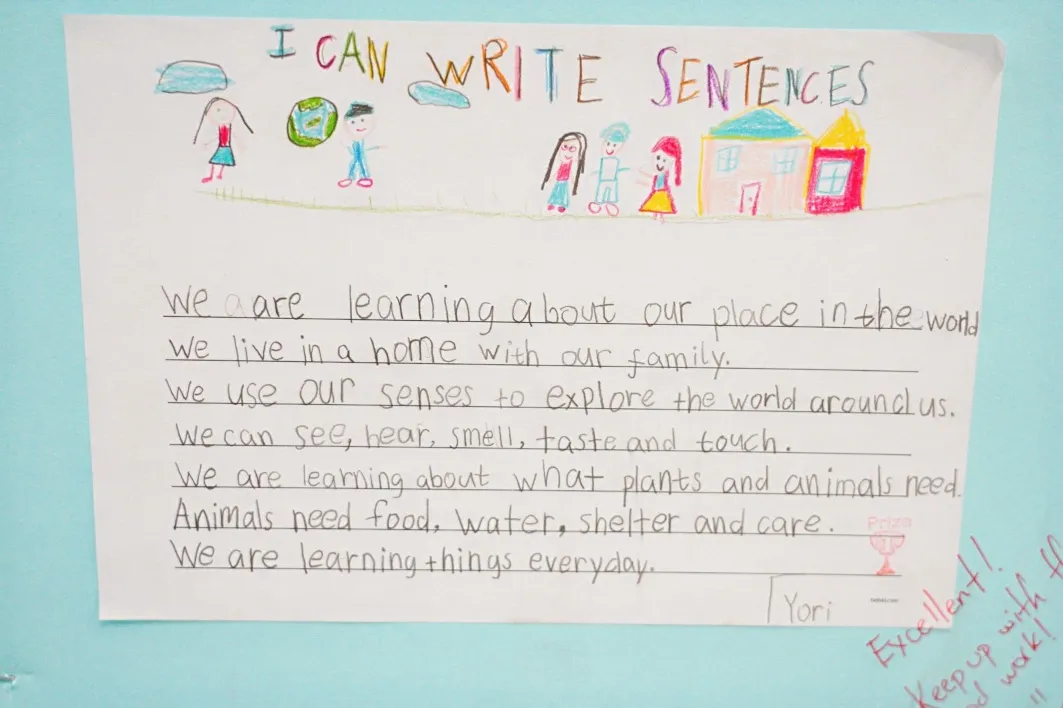 I CAN WRITE SENTENCES
We a are learning about our place in the world
We live in a home with our family.
We use our senses to explore the world around us.
We can see, hear, smell, taste and touch.
We are learning about what plants and animals need.
Animals need food, water, shelter and care.
Prize
We are learning things everyday.
Yori
Excellent!
Keep up with
work!